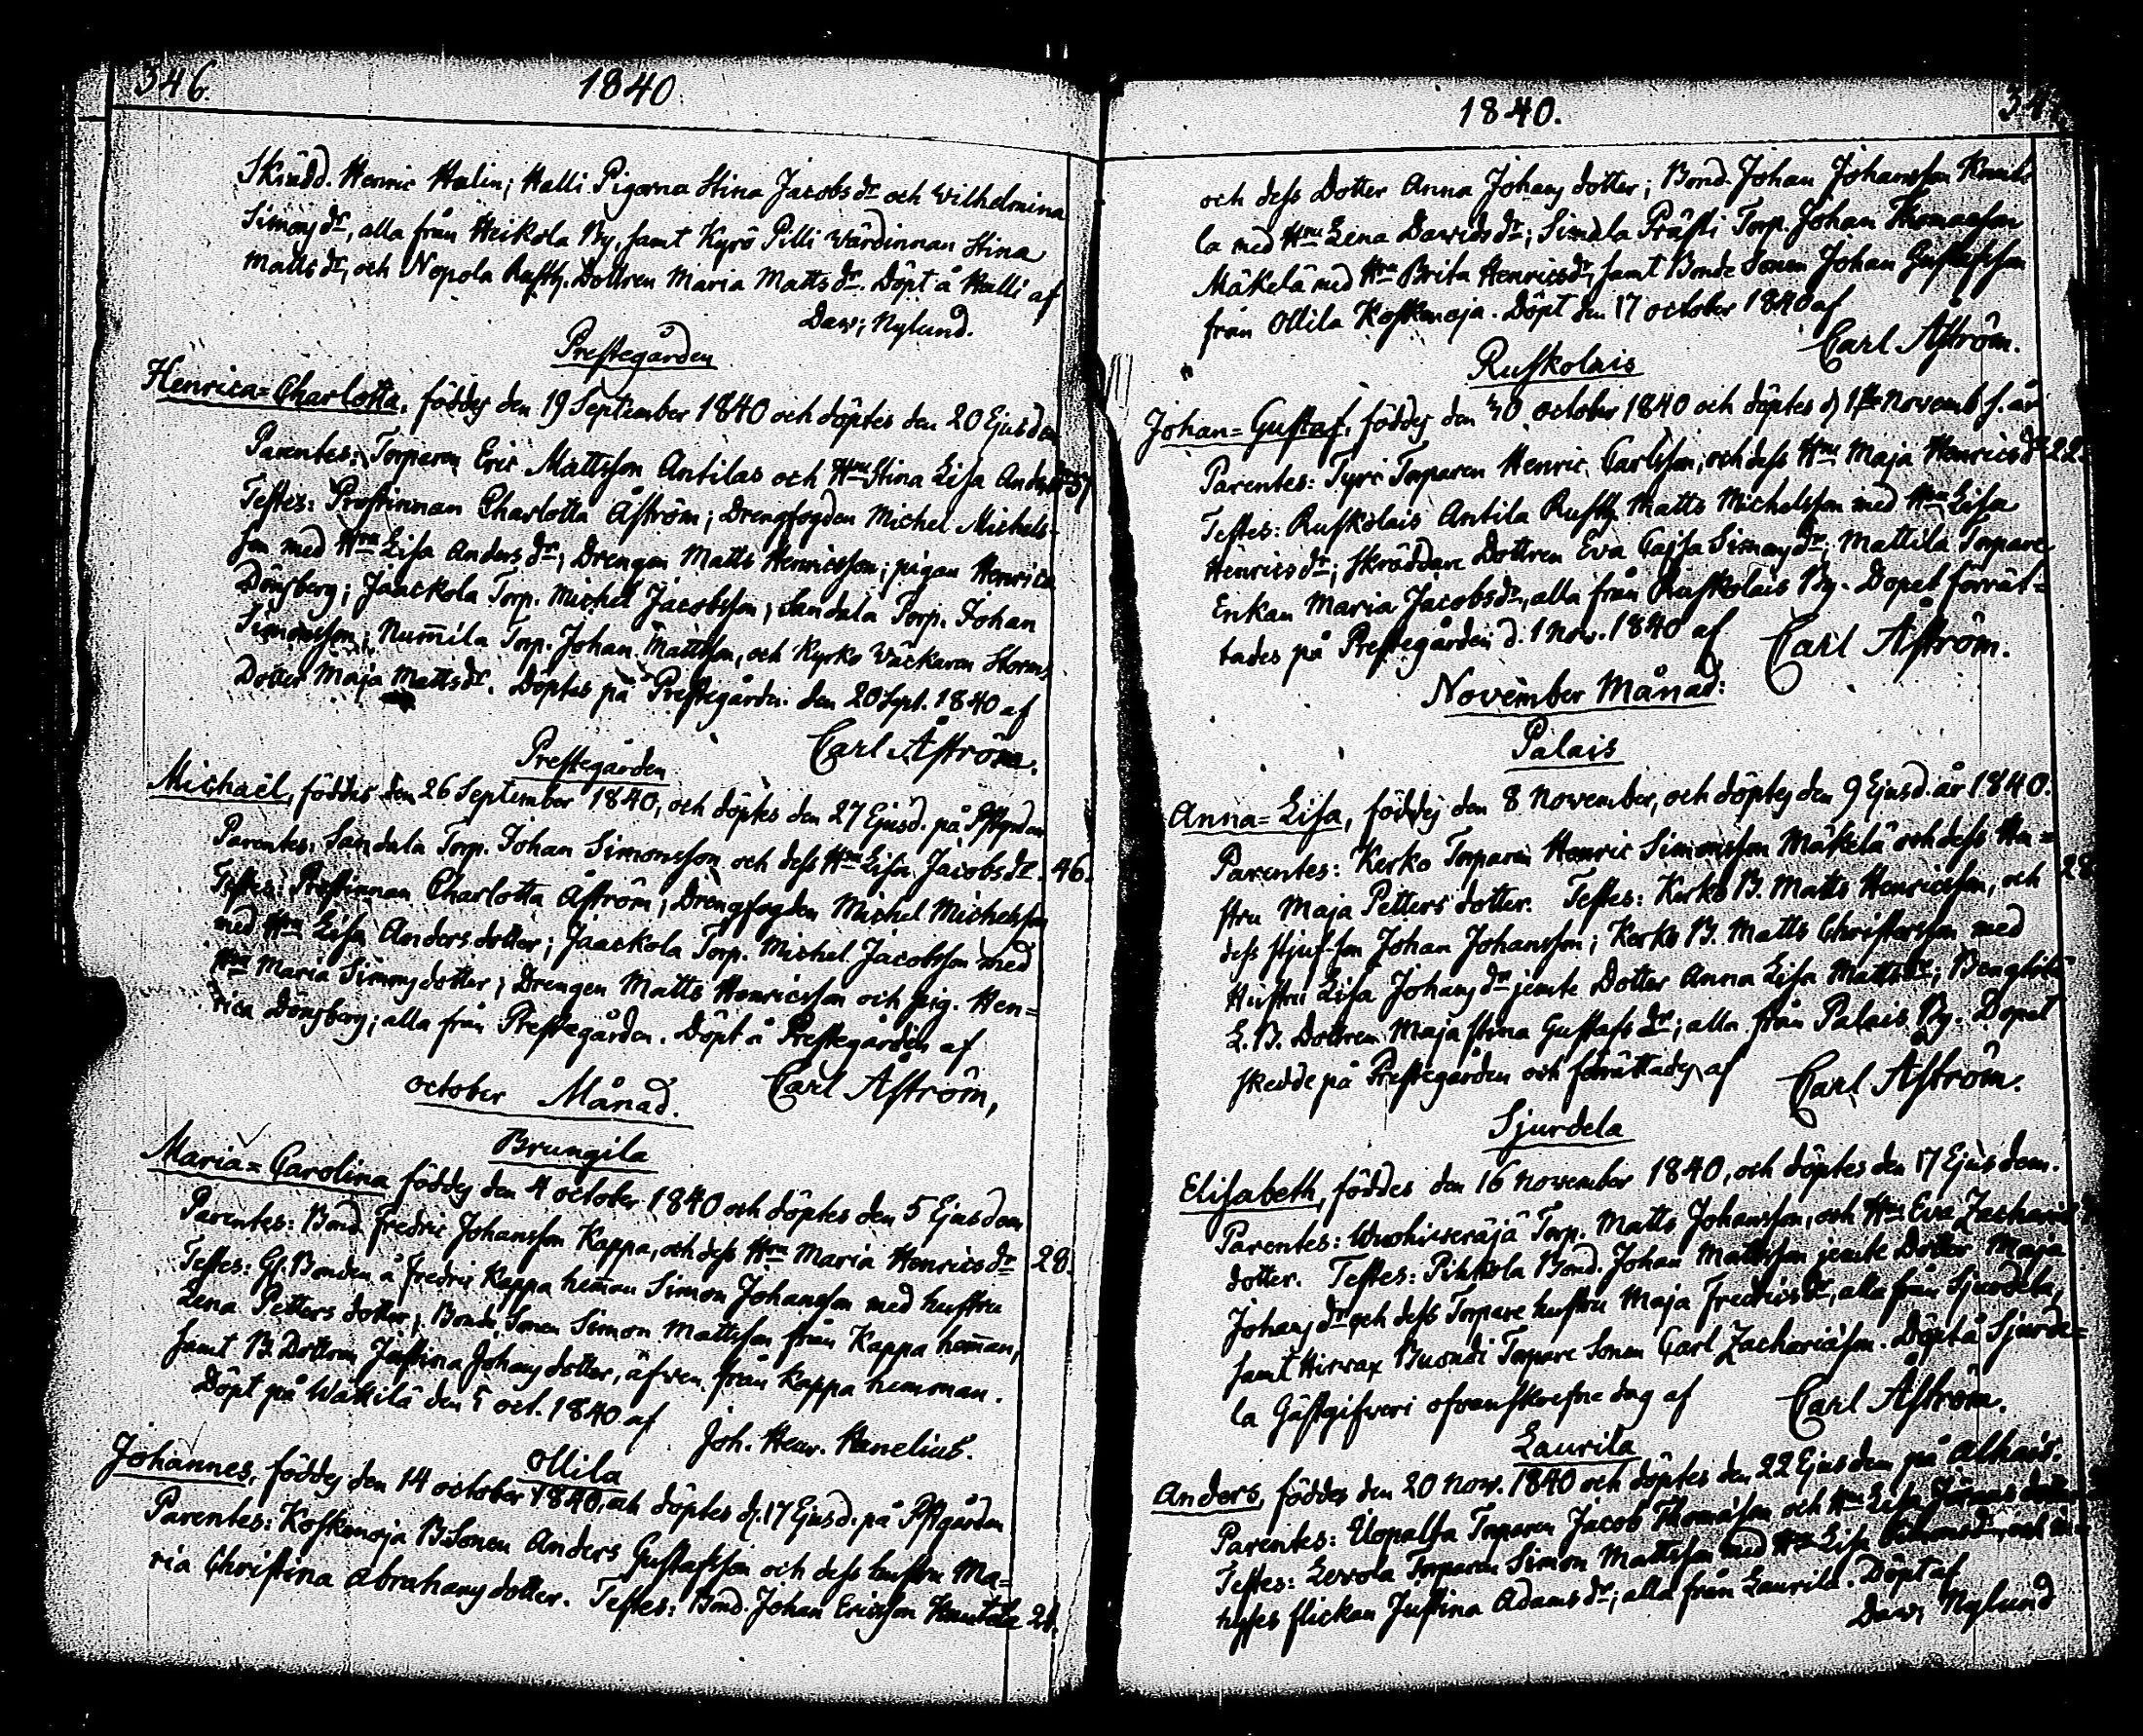 346.
1840
Skrädd. Henric Halin; Halli Pigorna Stina Jacobs dr och Wilhelmina
Simons dr, alla från Heikola By, samt Kyrö Pilli Wärdinnan Stina
Matts dr, och Nopola Rusth. Dottren Maria Matts dr. Döpt å Halli af
Daw; Nylund.
Prestegården
Henrica=Charlotta, föddes den 19 September 1840 och döptes den 20 Ejusdem
Parentes: Torparen Eric Mattsson Antilas och Hru Stina Lisa Anders dr
Testes: Prostinnan Charlotta Åström; Drengfogden Michel Michels-
son med Hru Lisa Anders dr; Drengen Matts Henricsson; pigan Henrica
Dönsberg; Jaackola Torp. Michel Jacobsson; Sandala Torp. Johan
Simonsson; Num̄ila Torp. Johan Mattsson, och Kyrko Wäckaren Storms
Dotter Maja Matts dr. Döptes på Prestegården den 20 Sept. 1840 af
Carl Åström.
Prestegården
Michaël, föddes den 26 September 1840, och döptes den 27 Ejusd. på Pstgrden
Parentes, Sandala Torp. Johan Simonsson och dess Hru Lisa Jacobs dr. 46.
Testes: Prostinnan Charlotta Åström; Drengfogden Michel Michelsson
med Hru Lisa Andersdotter; Jaackola Torp. Michel Jacobsson med
Hru Maria Simonsdotter; Drengen Matts Henricsson och pig. Hen=
rica Dönsberg; alla från Prestegården. Döpt å Prestegården af
Carl Åström,
October Månad.
Brungila
Maria=Carolina föddes den 4 october 1840 och döptes den 5 Ejusdem
Parentes: Bond. Fredric Johansson Kappa, och dess Hru Maria Henrics dr 28.
Testes: Gl. Bonden å Fredric Kappa hem̄an Simon Johansson med hustru
Lena Petters dotter; Bonde Sonen Simon Mattsson från Kappa hem̄an,
samt B. Dottren Justina Johans dotter, äfwen från Kappa hemman.
Döpt på Wattilä den 5 oct. 1840 af
Joh. Henr. Hanelius.
Ollila
Johannes, föddes den 14 october 1840, och döptes d. 17 Ejusd. på Pstgården
Parentes: Koskenoja B:Sonen Anders Gustafsson och dess hustru Ma=
ria Christina Abrahams dotter. Testes: Bond. Johan Ericsson Knutila 21.
1840.
och dess Dotter Anna Johans dotter; Bond. Johan Johansson
la med Hru Lena Dawids dr; Simola Prästi Torp. Johan Thomasson
Mäkelä med Hru Brita Henrics dr, samt Bonde Sonen Johan Gustafsson
från Ollila Koskenoja. Döpt den 17 october 1840 af
Carl Åström.
Ruskolais
Johan=Gustaf, föddes den 30 october 1840 och döptes d 1ste Novemb s. år
Parentes: Tyri Torparen Henric Carlsson, och dess Hru Maja Henrics dr 22.
Testes: Ruskolais Antila Rusth. Matts Michelsson med Hru Lisa
Henrics dr; Skräddare Dottren Eva Cajsa Simons dr; Mattila Torpare
Enkan Maria Jacobs dr, alla från Ruskolais By. Dopet förrät=
tades på Prestegården d. 1 Nov. 1840 af
Carl Åström.
November Månad:
Palais
Anna=Lisa, föddes den 8 November, och döptes den 9 Ejusd. år 1840.
Parentes: Kerko Torparen Henric Simonsson Mäkelä och dess Hu=
stru Maja Petters dotter. Testes: Kerko B. Matts Henricsson, och 28
dess stjuf-son Johan Johansson; Kerko B. Matts Christersson med
Hustru Lisa Johans dr jemte Dotter Anna Lisa Matts dr;
L. B. Dottren Maja Stina Gustafs dr; alla från Palais By. Dopet
skedde på Prestegården och förrättades af
Carl Åström.
Sjurdela
Elisabeth, föddes den 16 November 1840, och döptes den 17 Ejusdem.
Parentes: Torp. Matts Johansson, och Hru Eva Zacharie
dotter. Testes: Pihkola Bond. Johan Mattsson jemte Dotter Maja
Johans dr och dess Torpare hustru Maja Fredrics dr, alla från Sjurdela,
samt Hirvax Buondi Torpare Sonen Carl Zachariäson. Döpt å Sjurde=
la Gästgifveri ofvanskrefne dag af
Carl Åström.
Laurila
Anders, föddes den 20 Nov. 1840 och döptes den 22 Ejusdem på
Parentes: Uopalsa Torparen Jacob Thomasson och Hru Lisa
Testes: Levola Torparen Simon Mattsson med Hru Lisa
hyses flickan Justina Adams dr; alla från Laurila. Döpt af
Daw; Nylund